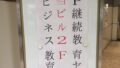 F継続教育セ
当ビル2F
ビジネス教育